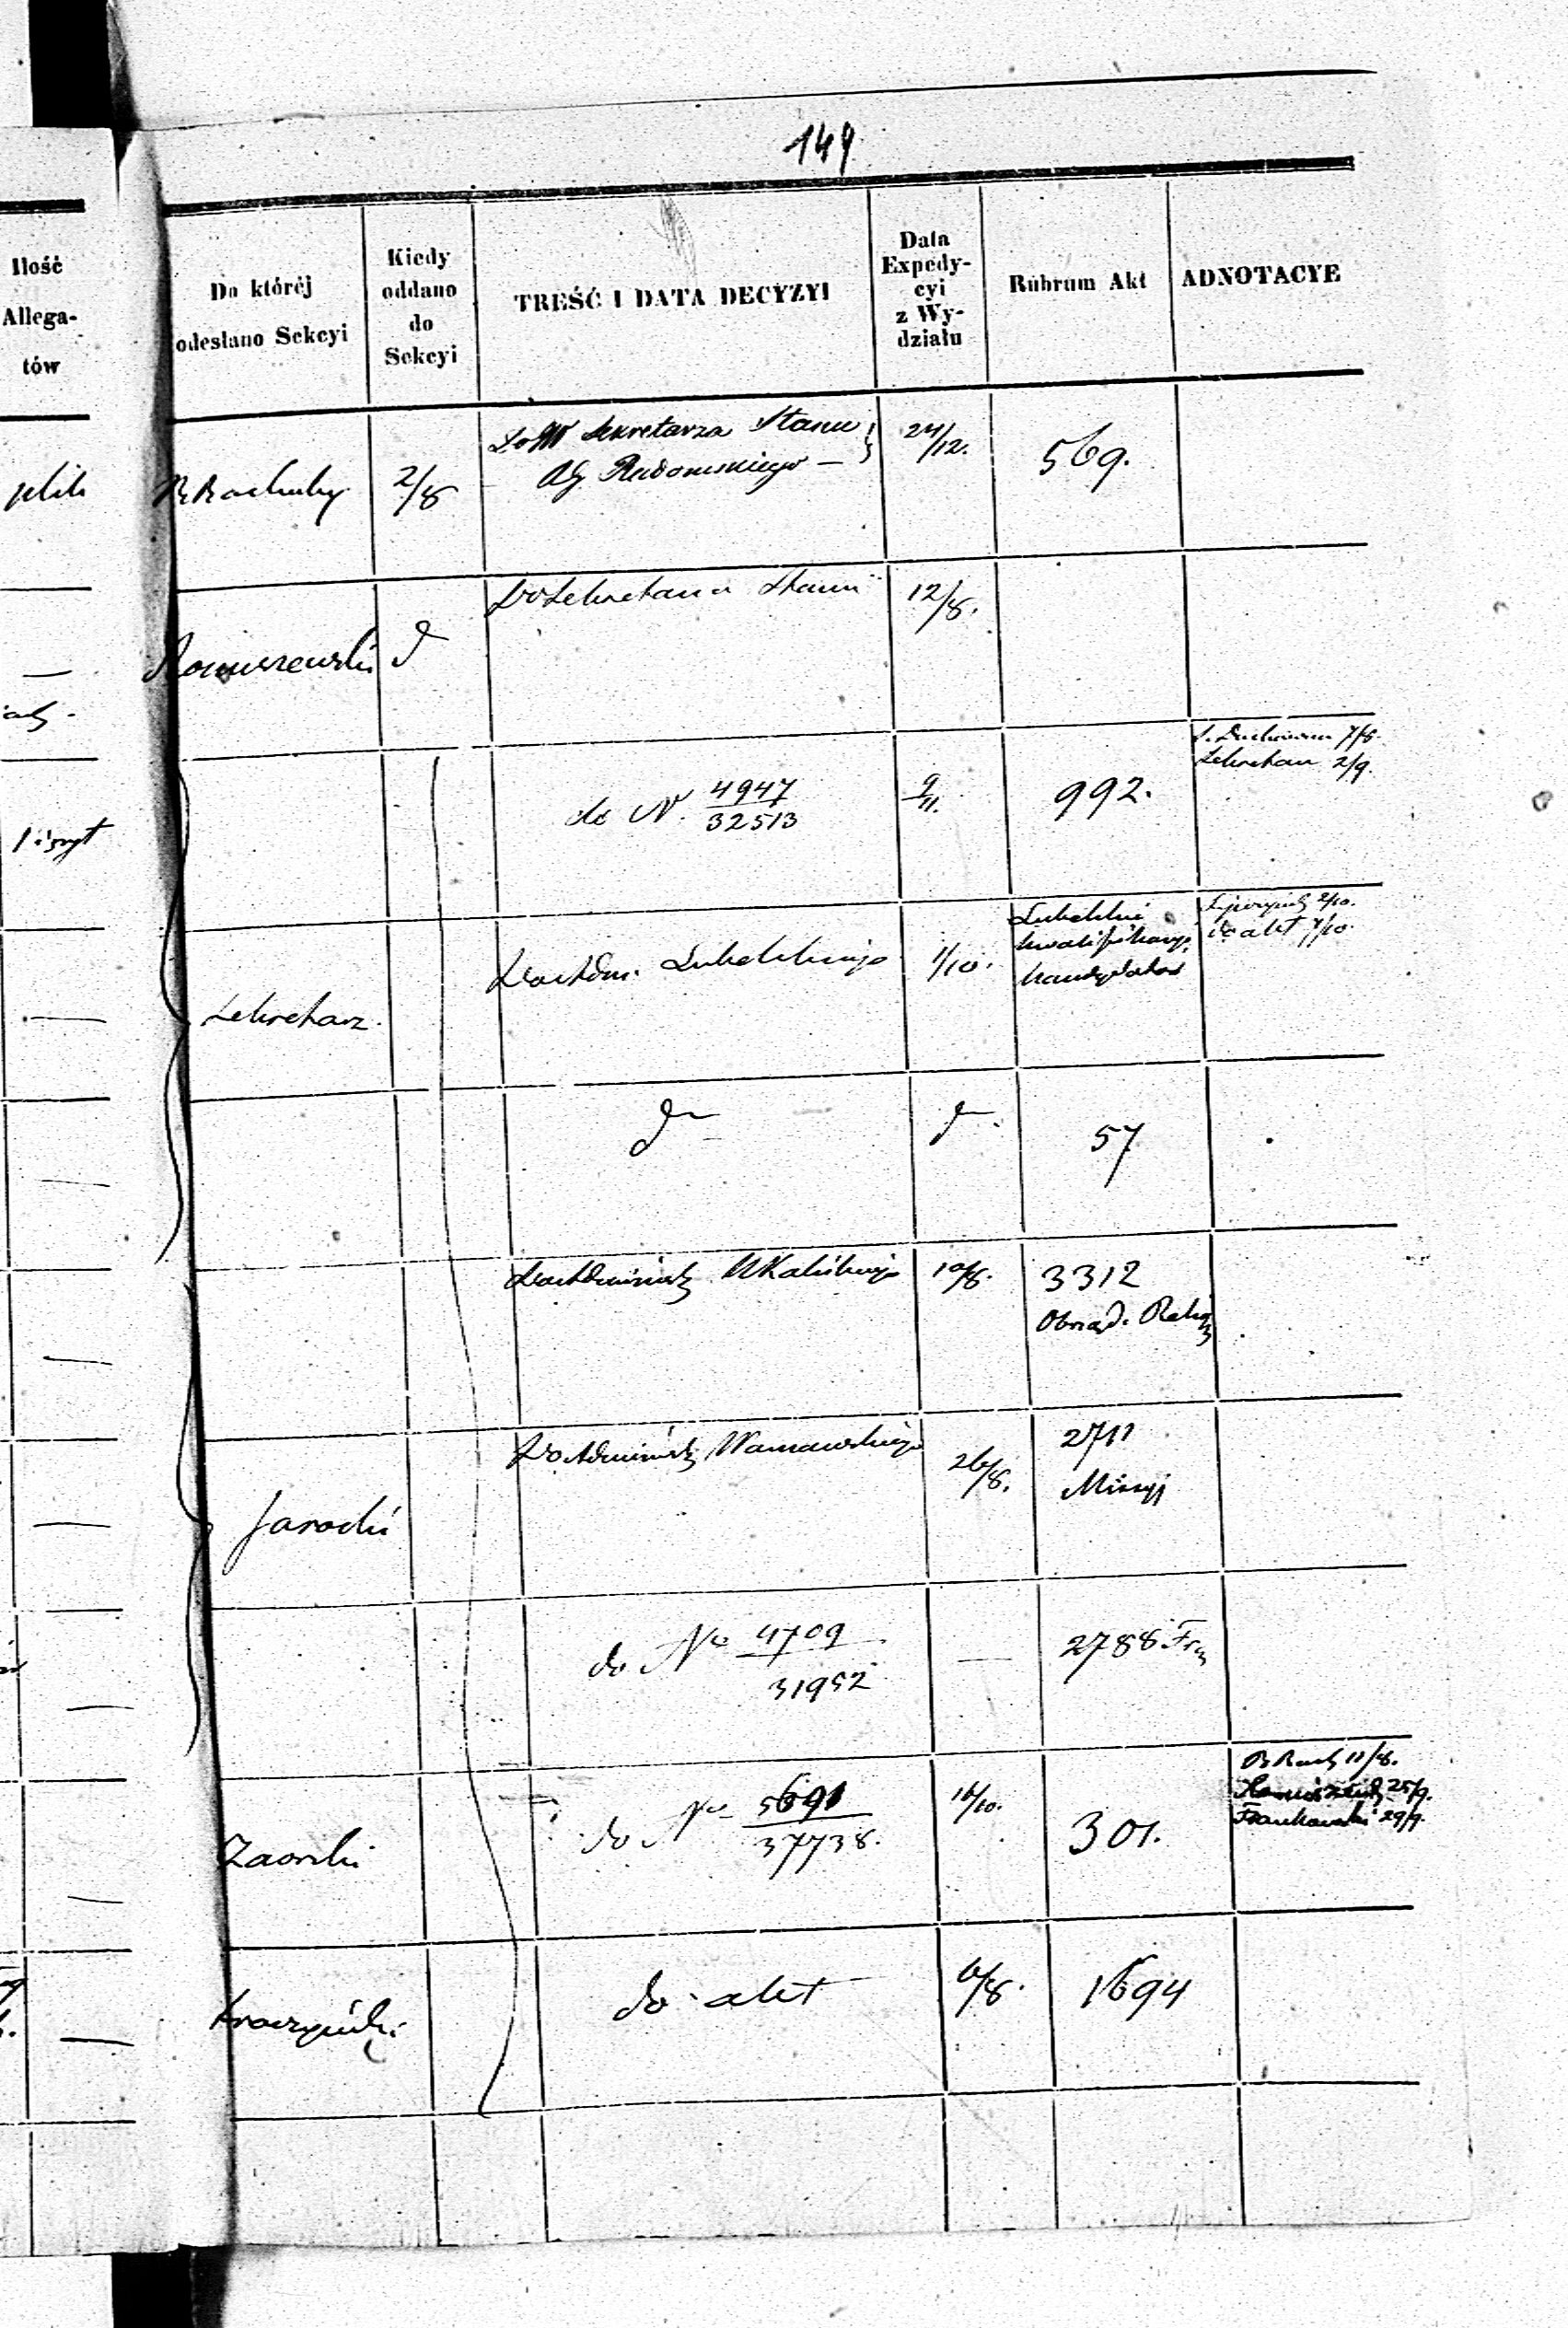 149
Ilość
Allega-
tów
Do któréj
odesłano Sekcyi
Kiedy
oddano
do
Sekcyi
TREŚĆ I DATA DECYZYI
Data
Expedy-
cyi
z Wy-
działu
Rubrum Akt
ADNOTACYE
plik
B Rachuby
2/8
Do JW Sekretarza Stanu
Radomskiego —
24/12.
569.
Do Sekretarza Stanu
12/8.
do N. 4947
32513
9/11.
992.
7/8
Sekretarz 2/9.
Sekretarz.
Do Adm. Lubelskiego
1/10.
Lubelskie
kwalifikacyi
kandydatów
2/10.
do akt 7/10.
57
Do Administr Kaliskiego
10/8.
3312
Obrząd. Relig
Jarocki
Do Administr Warszawskiego
26/8.
2711
Missyj
do No 4709
31952
—
2788
Zaorski
do No 5691
37738.
16/10.
301.
B Rach 11/8.
25/9.
Frankowski 29/9.
do akt
6/8.
1694